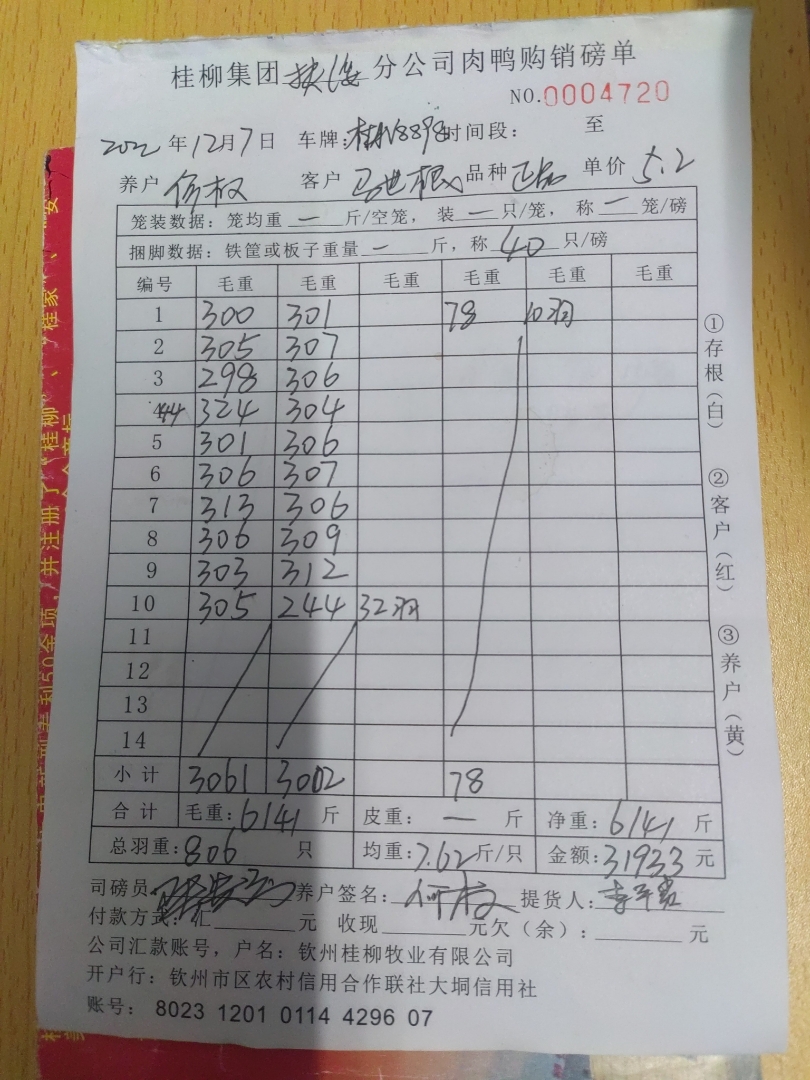 桂柳集团 分公司肉鸭购销磅单
NO.0004720
2022年12月7日 车牌: 8898 时间段: 至
养户 权 客户 马世根 品种 正品 单价 5.2
笼装数据: 笼均重 — 斤/空笼, 装 — 只/笼, 称 — 笼/磅
捆脚数据: 铁筐或板子重量 — 斤, 称 40 只/磅
编号 毛重 毛重 毛重 毛重 毛重 毛重
1 300 301 78 10羽
2 305 307
3 298 306
44 324 304
5 301 306
6 306 307
7 313 306
8 306 309
9 303 312
10 305 244 32羽
11
12
13
14
小计 3061 3002 78
合计 毛重: 6141 斤 皮重: — 斤 净重: 6141 斤
总羽重: 806 只 均重: 7.62 斤/只 金额: 31933 元
司磅员 养户签名: 提货人:
付款方式: 汇 元 收现 元欠(余): 元
公司汇款账号, 户名: 钦州桂柳牧业有限公司
开户行: 钦州市区农村信用合作联社大垌信用社
账号: 8023 1201 0114 4296 07
①存根(白)
②客户(红)
③养户(黄)